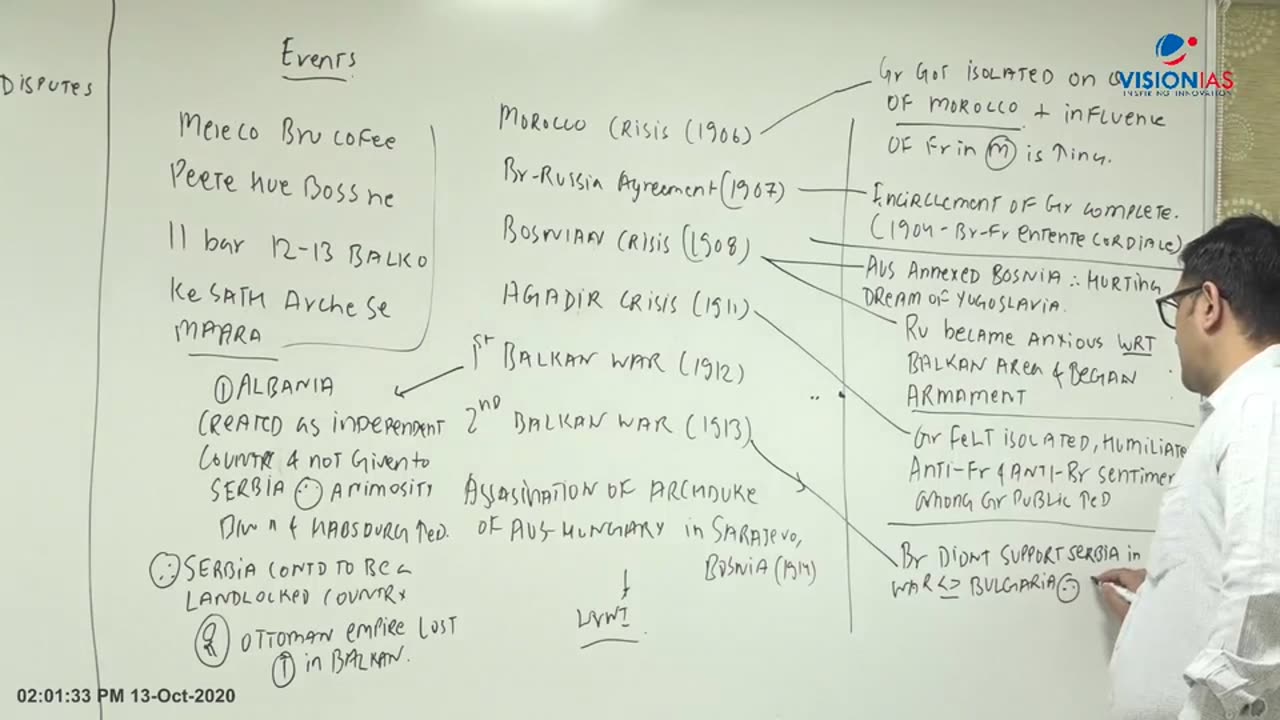 DISPUTES
Events
Meieco Bru cofee
Peete hue Boss ne
11 bar 12-13 BALKO
Ke SATH Archese
MAARA
① ALBANIA
CREATED as independent
COUNTRY & not Given to
SERBIA ∴ Animosity
Btw n & HABSBURG ↑ed.
∴ SERBIA CONTD TO BE a
LANDLOCKED COUNTRY
② OTTOMAN empire LOST
Ⓣ in BALKAN.
MOROCCO CRISIS (1906)
Br-Russia Agreement (1907)
BOSNIAN CRISIS (1908)
AGADIR CRISIS (1911)
1ST BALKAN WAR (1912)
2ND BALKAN WAR (1913)
ASSASINATION OF ARCHDUKE
OF AUS-HUNGARY in SARAJEVO,
BOSNIA (1914)
↓
WWI
Gr GOT ISOLATED on
OF MOROCCO + inFLuence
OF Fr in Ⓜ is ↑ing.
EnCIRCLEMENT OF Gr COMPLETE.
(1904-Br-Fr ENTENTE CORDIALE)
AUS Annexed BOSNIA ∴ HURTING
DREAM OF YUGOSLAVIA.
Ru became Anxious WRT
BALKAN Area & BEGAN
ARMAMENT
Gr FELT ISOLATED, HUMILIATE
ANTI-Fr & ANTI-Br Sentimen
among Gr PUBLIC ↑ED
Br DIDNT SUPPORT SERBIA in
WAR <> BULGARIA ∴
VISIONIAS
INSPIRING INNOVATION
02:01:33 PM 13-Oct-2020